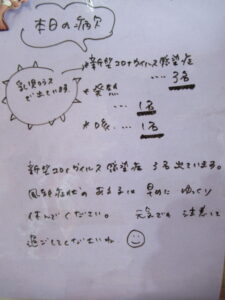 本日の病欠
乳児クラス
で出ています。
*新型コロナウイルス感染症
… 3名
*発熱
… 1名
*咳 … 1名
新型コロナウイルス感染症 3名出ています。
風邪症状のある方は 早めに ゆっくり
休んでください。 元気でも 注意して
過ごしてくださいね